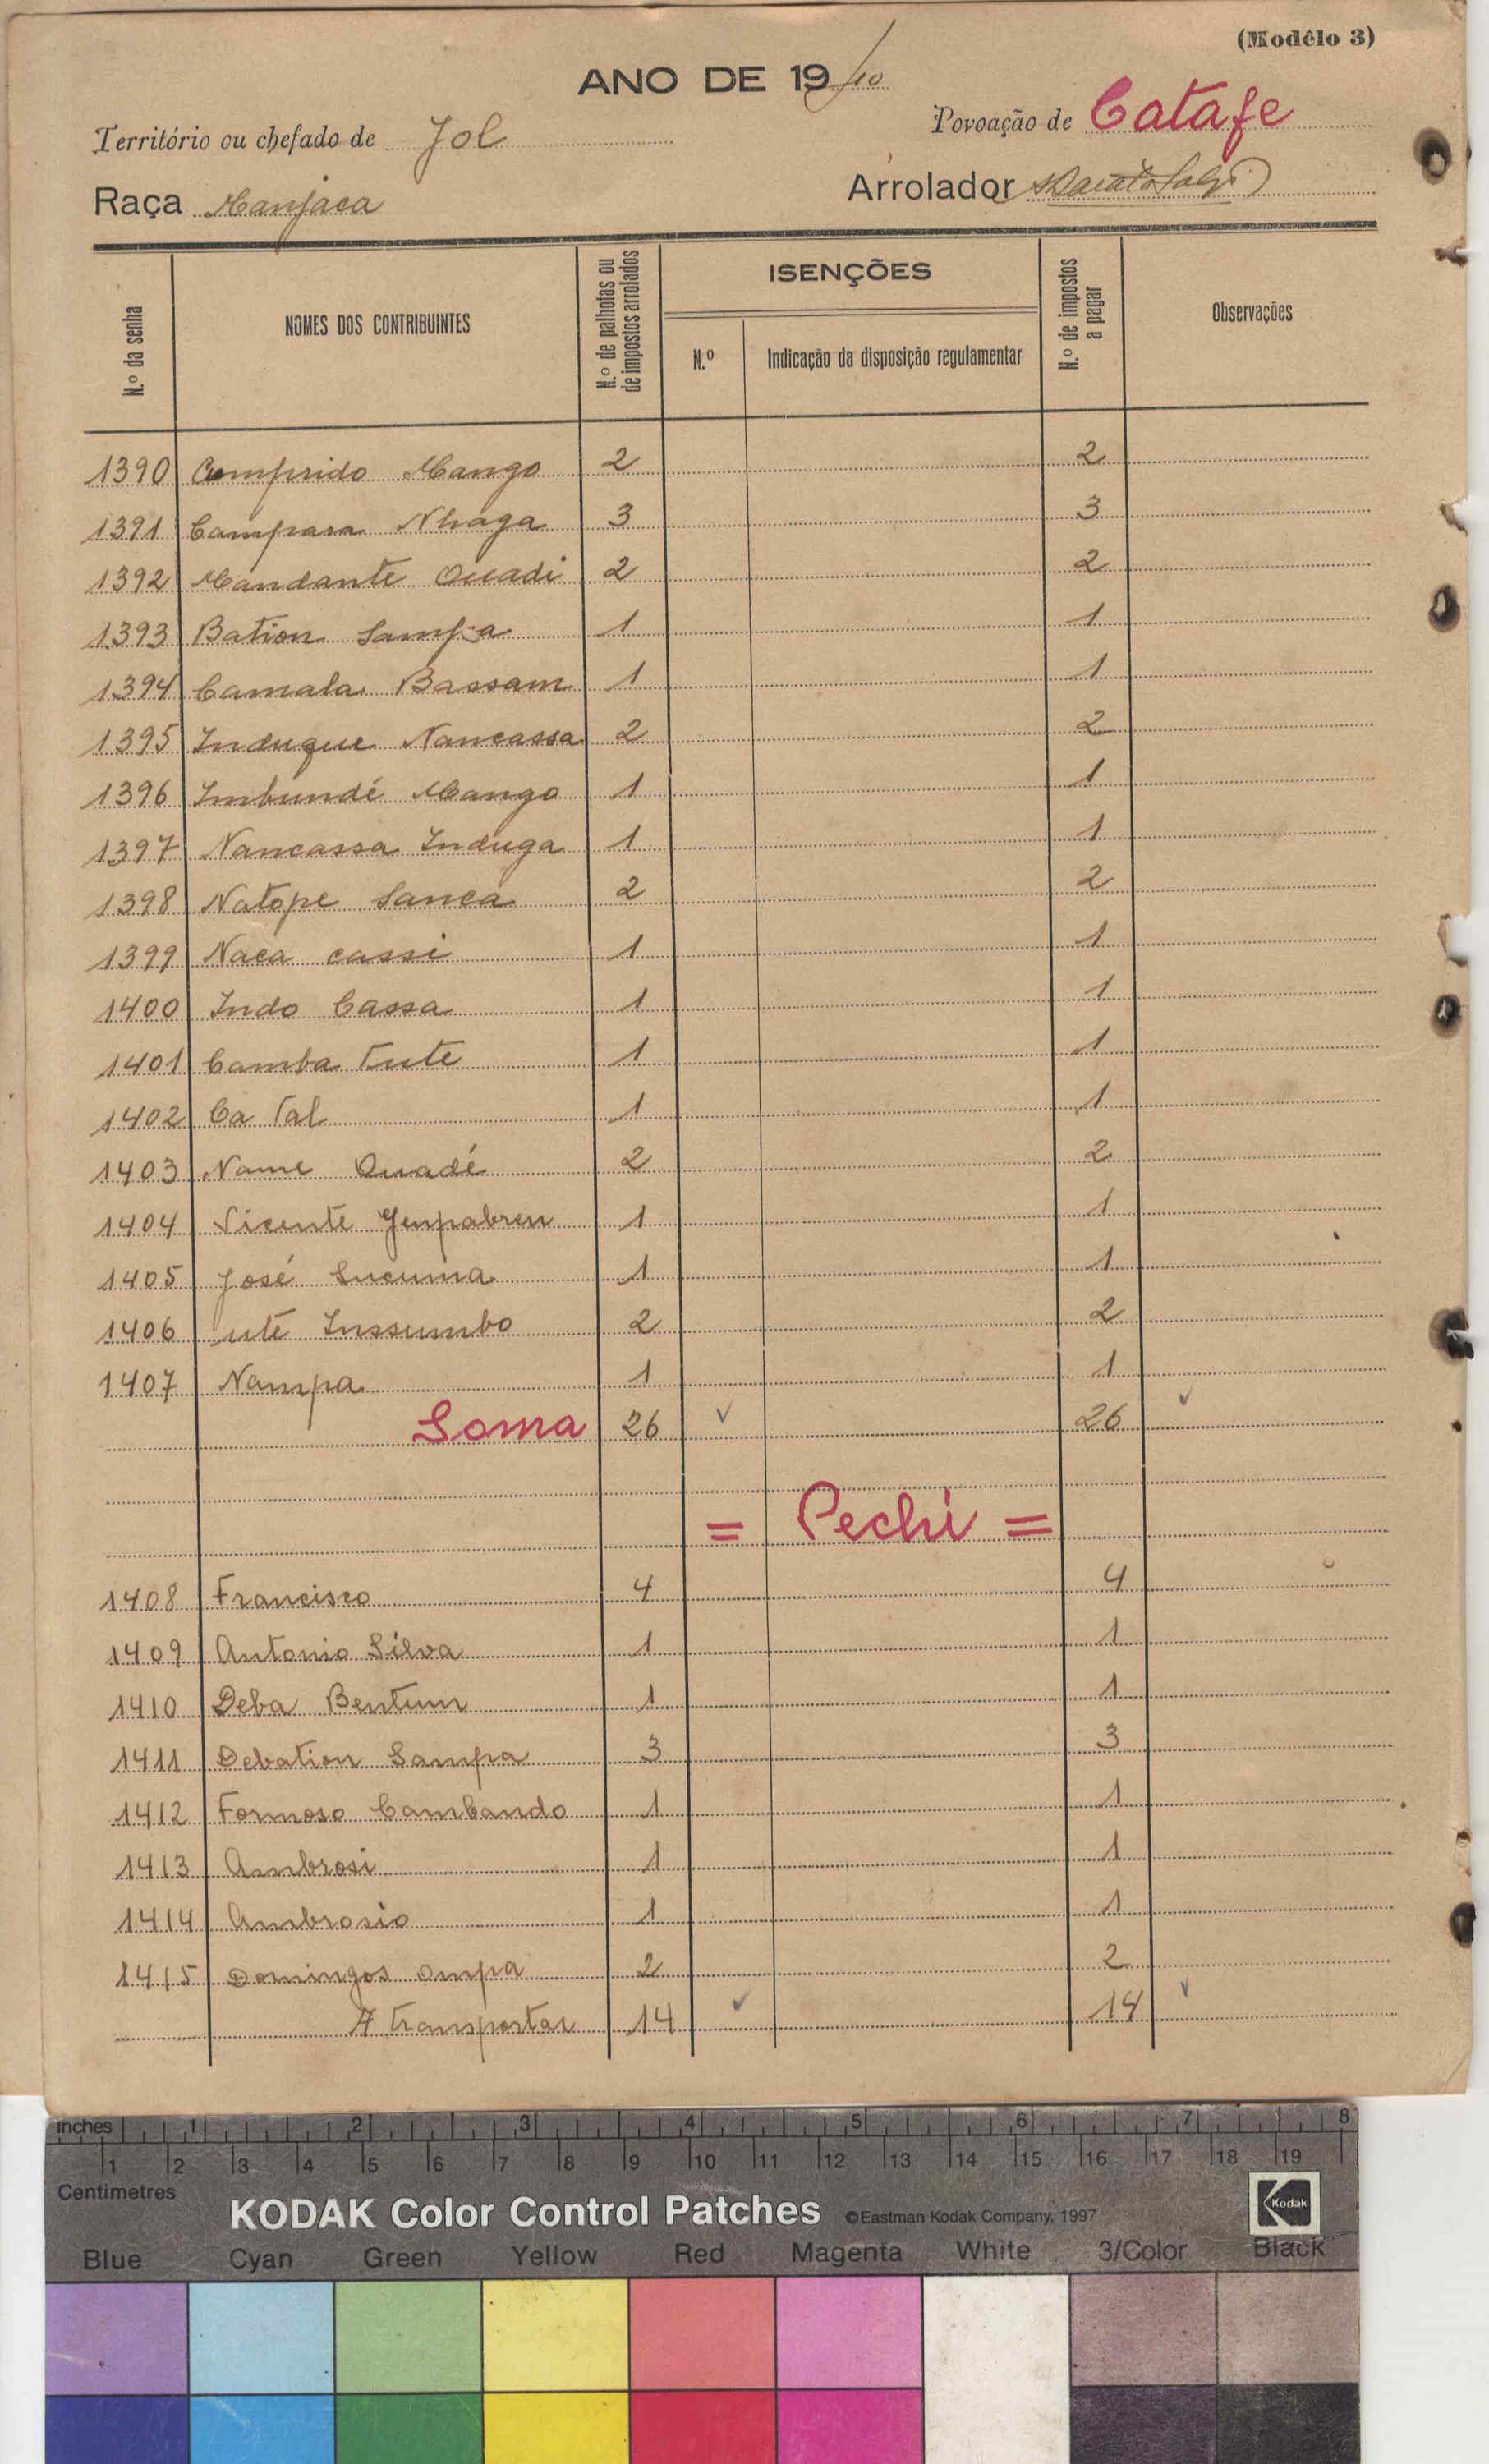 (Modêlo 3)
ANO DE 19
Território ou chefado de Jol
Povoação de Catafe
Raça Manjaca
Arrolador
N.º da senha
NOMES DOS CONTRIBUINTES
N.º de palhotas ou de impostos arrolados
ISENÇÕES
N.º
Indicação da disposição regulamentar
N.º de impostos a pagar
Observações
1390 Comprido Mango 2 2
1391 Campara Nhaga 3 3
1392 Mandante Ouadi 2 2
1393 Bation Sampa 1 1
1394 Camala Bassam 1 1
1395 Induque Nancassa 2 2
1396 Imbundé Mango 1 1
1397 Nancassa Induga 1 1
1398 Natope Sanca 2 2
1399 Naca cassi 1 1
1400 Indo Cassa 1 1
1401 Camba Tute 1 1
1402 Ca Tal 1 1
1403 Name Ouadé 2 2
1404 Vicente 1 1
1405 José Sucuma 1 1
1406 uté Inssumbo 2 2
1407 Nampa 1 1
Soma 26 26
= Pechi =
1408 Francisco 4 4
1409 Antonio Silva 1 1
1410 Deba Bentum 1 1
1411 Debation Sampa 3 3
1412 Formoso Cambando 1 1
1413 Ambrosi 1 1
1414 Ambrosio 1 1
1415 Domingos ompa 2 2
A transportar 14 14
inches 1 2 3 4 5 6 7 8
1 2 3 4 5 6 7 8 9 10 11 12 13 14 15 16 17 18 19
Centimetres
KODAK Color Control Patches ©Eastman Kodak Company, 1997 Kodak
Blue Cyan Green Yellow Red Magenta White 3/Color Black